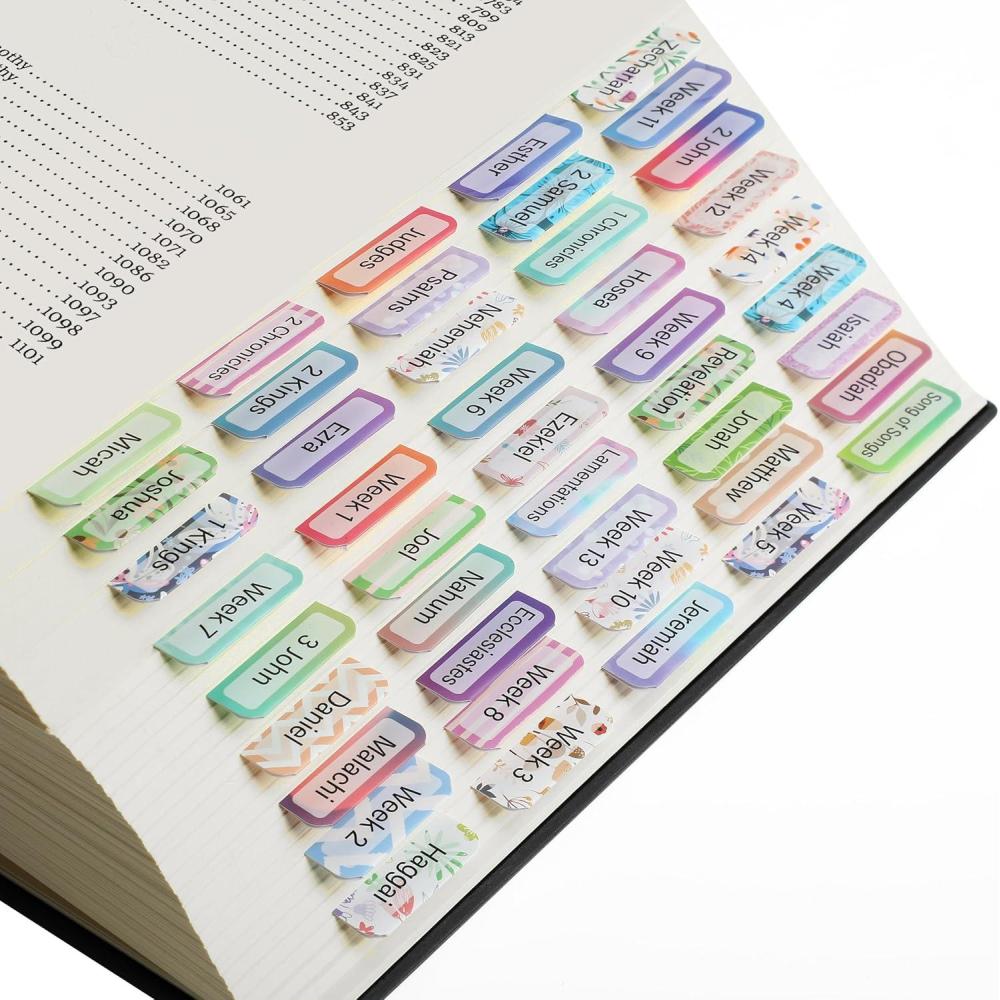 othy
thy
783
799
809
813
821
823
825
831
834
837
841
843
853
1061
1065
1068
1070
1071
1082
1086
1090
1093
1097
1098
1099
1101
Zechariah
Week 11
2 John
Week 12
Week 14
Week 4
Isaiah
Obadiah
Song of Songs
Esther
2 Samuel
1 Chronicles
Hosea
Week 9
Revelation
Jonah
Matthew
Week 5
Judges
Psalms
Nehemiah
Week 6
Ezekiel
Lamentations
Week 13
Week 10
Jeremiah
2 Chronicles
2 Kings
Ezra
Week 1
Joel
Nahum
Ecclesiastes
Week 8
Week 3
Micah
Joshua
1 Kings
Week 7
3 John
Daniel
Malachi
Week 2
Haggai